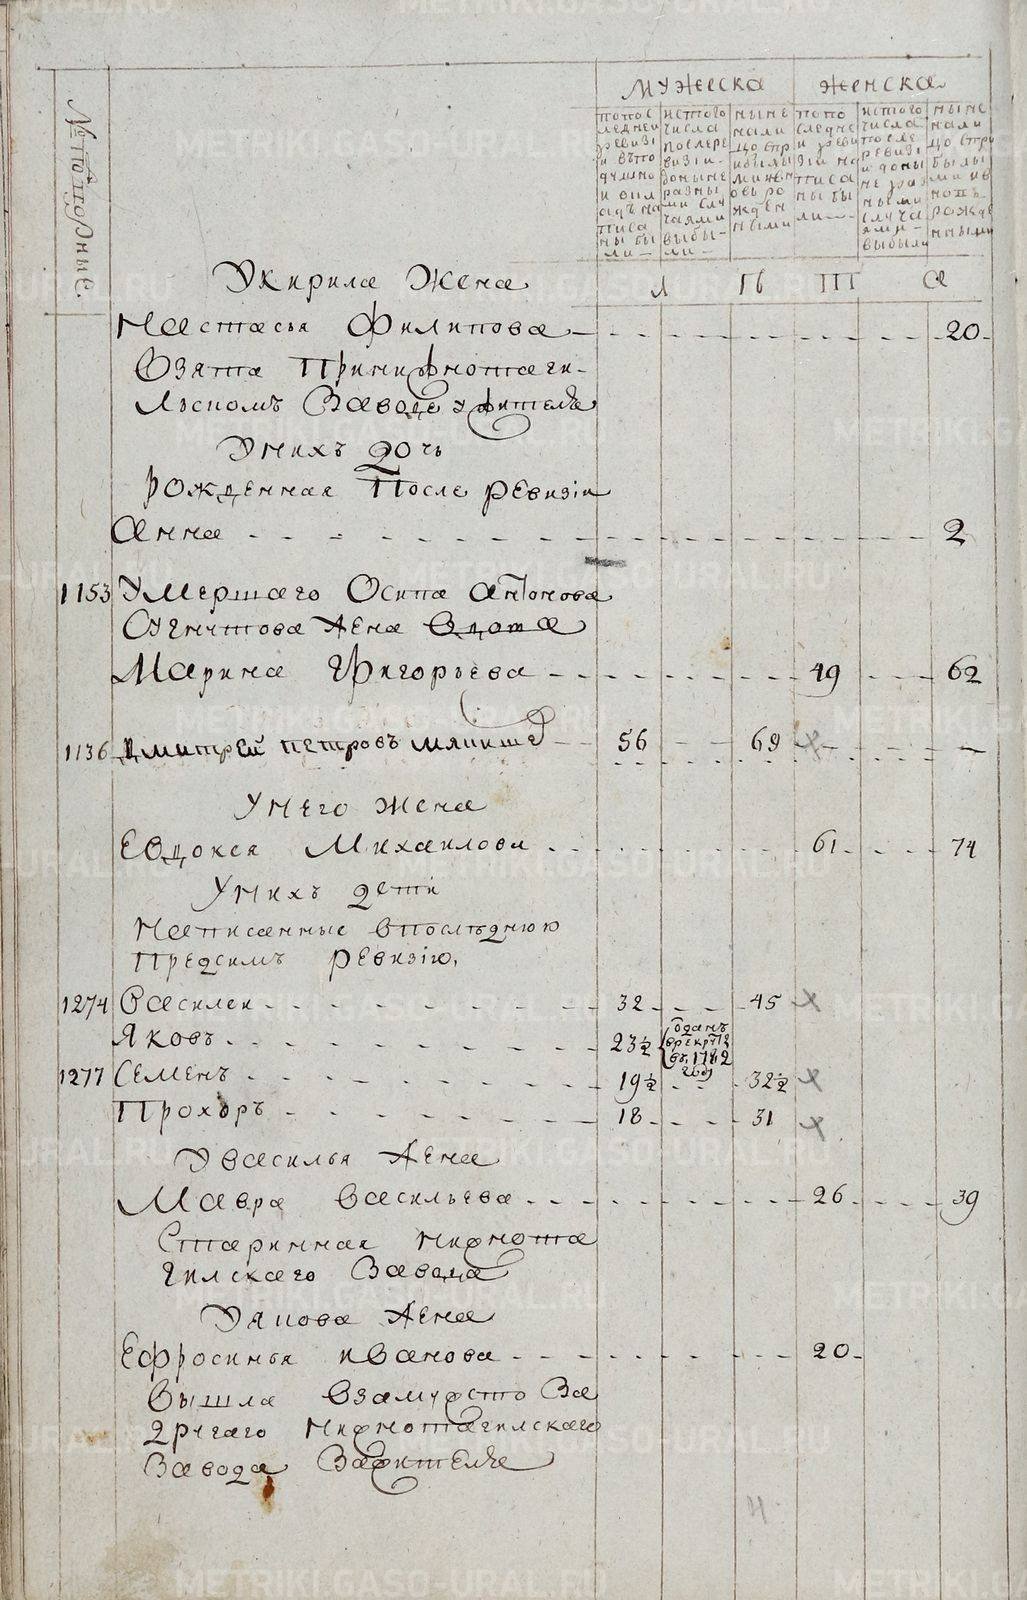 мужеска женска
№ подушные
попос ледней ревизi и в подушно и окладъ на писа ны бы ли
истого числа послере визiи доныне разны ми слу чаями выбы ли
ныне нали цо спр ибылы ми и вн овь ро жден ными
попо следне и реви зiи на писа ны бы ли
истого числа после ревизi и доны не раз ными случа ями выбыли
ныне нали цо спри былы ми и в новь рожде нными
У кирила жена
л пв III а
Настасья Филипова 20
Взята При нижнотаги-
льскомъ Заводе у жителя
У нихъ дочь
рожденная После ревизiи
Анна 2
1153 Умершаго Осипа антонова
жена вдова
Марина Григорьева 49 62
1136 Дмитрей петровъ мякише 56 69
У него жена
Евдокея Михаилова 61 74
У нихъ дети
Написанные впоследнюю
Предсимъ ревизiю,
1274 Василеи 32 45
Яковъ 23½ отданъ врекруты въ 1782 году
1277 Семенъ 19½ 32½
Прохоръ 18 31
У василья жена
Мавра васильева 26 39
Старинная нижнота
гилскаго Завода
У якова жена
Ефросинья иванова 20
вышла взамужство За
другаго нижнотагилскаго
Завода Зажителя
METRIKI.GASO-URAL.RU